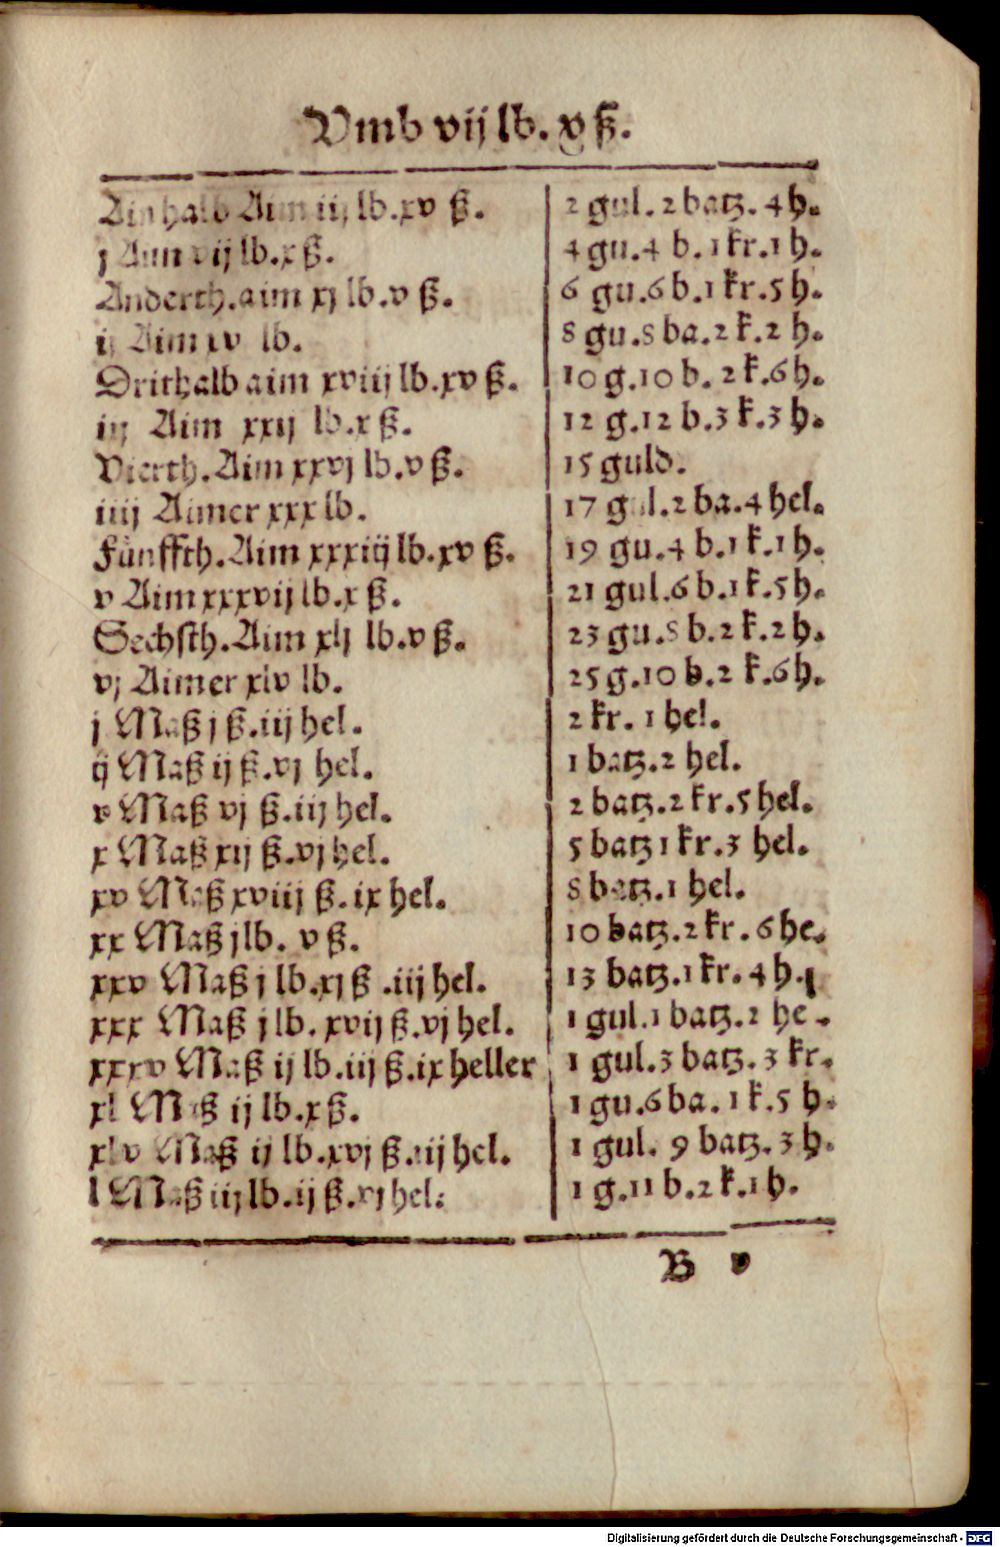 Vmb vij lb. x ß.
Ainhalb Aim iij lb. xv ß. 2 gul. 2 batz. 4 h.
j Aim vij lb. x ß. 4 gu. 4 b. 1 kr. 1 h.
Anderth. aim xj lb. v ß. 6 gu. 6 b. 1 kr. 5 h.
ij Aim xv lb. 8 gu. 8 ba. 2 k. 2 h.
Drithalb aim xviij lb. xv ß. 10 g. 10 b. 2 k. 6 h.
iij Aim xxij lb. x ß. 12 g. 12 b. 3 k. 3 h.
Vierth. Aim xxvj lb. v ß. 15 guld.
iiij Aimer xxx lb. 17 gul. 2 ba. 4 hel.
Fünffth. Aim xxxiij lb. xv ß. 19 gu. 4 b. 1 k. 1 h.
v Aim xxxvij lb. x ß. 21 gul. 6 b. 1 k. 5 h.
Sechsth. Aim xlj lb. v ß. 23 gu. 8 b. 2 k. 2 h.
vj Aimer xlv lb. 25 g. 10 b. 2 k. 6 h.
j Maß j ß. iij hel. 2 kr. 1 hel.
ij Maß ij ß. vj hel. 1 batz. 2 hel.
v Maß vj ß. iij hel. 2 batz. 2 kr. 5 hel.
x Maß xij ß. vj hel. 5 batz 1 kr. 3 hel.
xv Maß xviij ß. ix hel. 8 batz. 1 hel.
xx Maß j lb. v ß. 10 batz. 2 kr. 6 he.
xxv Maß j lb. xj ß. iij hel. 13 batz. 1 kr. 4 h.
xxx Maß j lb. xvij ß. vj hel. 1 gul. 1 batz. 2 he.
xxxv Maß ij lb. iij ß. ix heller 1 gul. 3 batz. 3 kr.
xl Maß ij lb. x ß. 1 gu. 6 ba. 1 k. 5 h.
xlv Maß ij lb. xvj ß. iij hel. 1 gul. 9 batz. 3 h.
l Maß iij lb. ij ß. vj hel. 1 g. 11 b. 2 k. 1 h.
B v
Digitalisierung gefördert durch die Deutsche Forschungsgemeinschaft - DFG